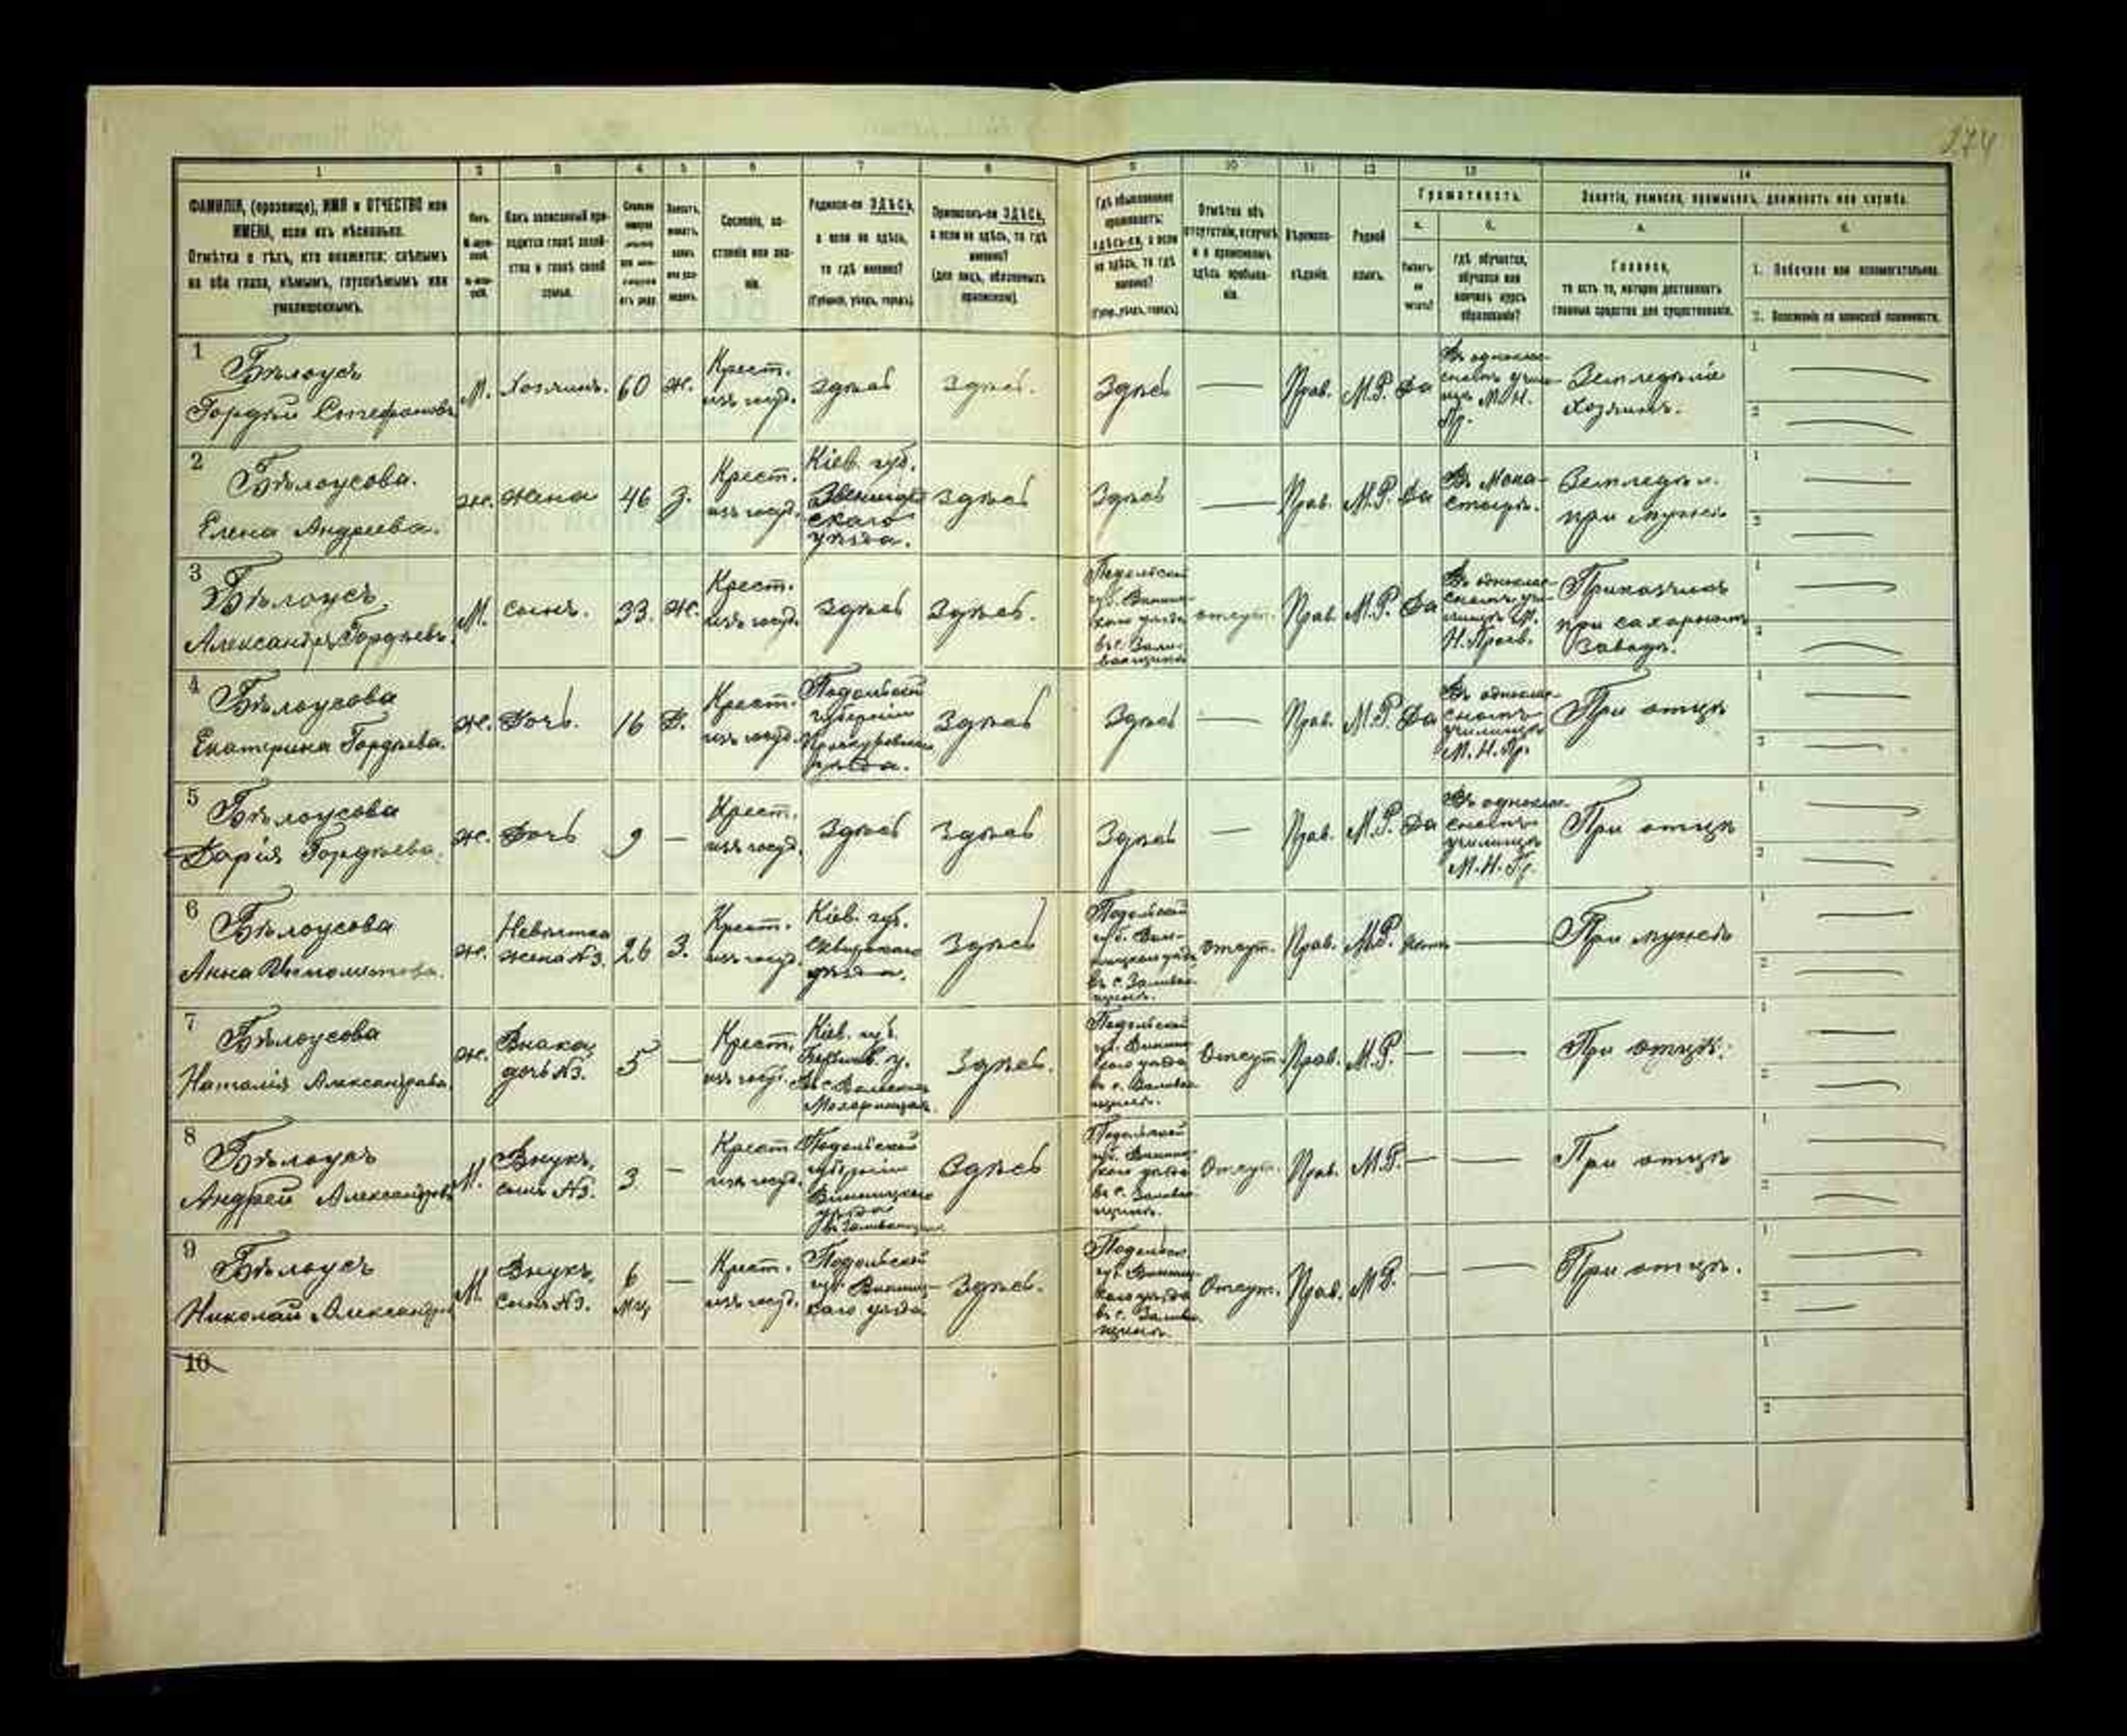 274
1 2 3 4 5 6 7 8 9 10 11 12 13 14
ФАМИЛІЯ, (прозвище), ИМЯ и ОТЧЕСТВО или
ИМЕНА, если ихъ нѣсколько.
Отмѣтка о тѣхъ, кто окажется: слѣпымъ
на оба глаза, нѣмымъ, глухонѣмымъ или
умалишеннымъ.
Полъ.
Какъ записанный при-
ходится главѣ хозяй-
ства и главѣ своей
семьи.
Сословіе, со-
стояніе или зва-
ніе.
Родился-ли ЗДѢСЬ,
а если не здѣсь,
то гдѣ именно?
(Губернія, уѣздъ, городъ).
Приписанъ-ли ЗДѢСЬ,
а если не здѣсь, то гдѣ
именно?
(для лицъ, обязанныхъ
припискою).
Гдѣ обыкновенно
проживаетъ:
здѣсь-ли, а если
не здѣсь, то гдѣ
именно?
(Губер., уѣздъ, городъ)
Отмѣтка объ
отсутствіи, отлучкѣ
и о временномъ
здѣсь пребыва-
ніи.
Вѣроиспо-
вѣданіе.
Родной
языкъ.
Грамотность.
а. б.
Умѣетъ-
ли
читать?
гдѣ обучается,
обучался или
кончилъ курсъ
образованія?
Занятіе, ремесло, промыселъ, должность или служба.
а. б.
Главное,
то есть то, которое доставляетъ
главныя средства для существованія.
1. Побочное или вспомогательное.
2. Положеніе по воинской повинности.
1
Бѣлоусъ
Гордѣй Стефановъ
М. Хозяинъ. 60 ж.
Крест.
изъ госуд.
здѣсь здѣсь. Здѣсь — Прав. М.Р. Да
Въ однокла-
сномъ учи-
лищѣ М. Н.
Пр.
Земледѣліе
хозяинъ.
2
Бѣлоусова.
Елена Андреева.
ж. жена 46 з.
Крест.
изъ госуд.
Кіев. губ.
Звенигород-
скаго
уѣзда.
здѣсь Здѣсь — Прав. М.Р. Да
Въ Мона-
стырѣ.
Земледѣл.
при мужѣ
3
Бѣлоусъ
Александръ Гордѣевъ.
М. сынъ. 33. ж.
Крест.
изъ госуд.
здѣсь Здѣсь.
Подольской
губ. Винниц-
каго уѣзда
въ с. Зали-
ванщинѣ
отсут. Прав. М.Р. Да
Въ однокла-
сномъ учи-
лищѣ М.
Н. Просв.
Приказчикъ
при сахарномъ
заводѣ.
4
Бѣлоусова
Екатерина Гордѣева.
ж. Дочь. 16 Д.
Крест.
изъ госуд.
Подольской
губерніи
Проскуровскаго
уѣзда.
Здѣсь Здѣсь — Прав. М.Р. Да
Въ однокла-
сномъ
училищѣ
М. Н. Пр.
При отцѣ
5
Бѣлоусова
Дарія Гордѣева.
ж. Дочь 9 —
Крест.
изъ госуд.
Здѣсь Здѣсь Здѣсь — Прав. М.Р. Да
Въ однокла-
сномъ
училищѣ
М. Н. Пр.
При отцѣ
6
Бѣлоусова
Анна Ипполитова.
ж.
Невѣстка
жена №3.
26 З.
Крест.
изъ госуд.
Кіев. губ.
Сквирскаго
уѣзда.
Здѣсь
Подольской
губ. Вин-
ницкаго уѣзда
въ с. Заливан-
щинѣ.
отсут. Прав. М.Р. —
При мужѣ
7
Бѣлоусова
Наталія Александрова.
ж.
Внака,
дочь №3.
5 —
Крест.
изъ госуд.
Кіев. губ.
Бердичев. у.
Махаринцахъ
Здѣсь.
Подольской
губ. Винниц-
каго уѣзда
въ с. Заливан-
щинѣ.
Отсут. Прав. М.Р. — —
При отцѣ.
8
Бѣлоусъ
Андрей Александровъ
М.
Внукъ,
сынъ №3.
3 —
Крест.
изъ госуд.
Подольской
губерніи
Винницкаго
уѣзда
въ Заливанщинѣ
Здѣсь
Подольской
губ. Винниц-
каго уѣзда
въ с. Заливан-
щинѣ.
Отсут. Прав. М.Р. — —
При отцѣ
9
Бѣлоусъ
Николай Александр
М.
Внукъ,
Сынъ №3.
6
мц —
Крест.
изъ госуд.
Подольской
губ. Винниц-
каго уѣзда
Здѣсь.
Подольской
губ. Винниц-
каго уѣзда
въ с. Заливан-
щинѣ.
Отсут. Прав. М.Р. — —
При отцѣ.
10